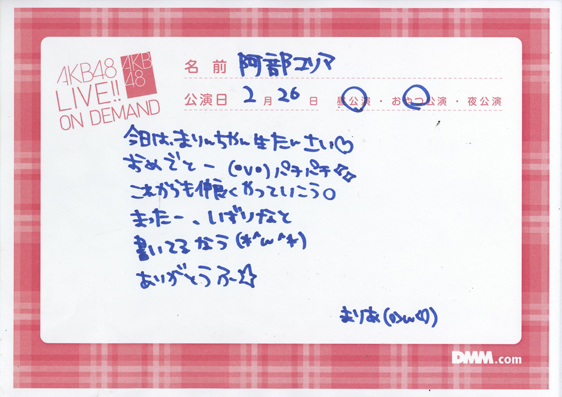 AKB48
LIVE!!
ON DEMAND
AKB
48
名前 阿部マリア
公演日 2月26日 昼公演・おやつ公演・夜公演
今日は、まりんちゃん生たんさい♡
おめでとー(•v•)パチパチ☆☆
これからも仲良くやっていこう○
まったー、いずりなと
書いてるなう(*^ω^*)
ありがとうふ☆
まりあ(・ω・)
DMM.com